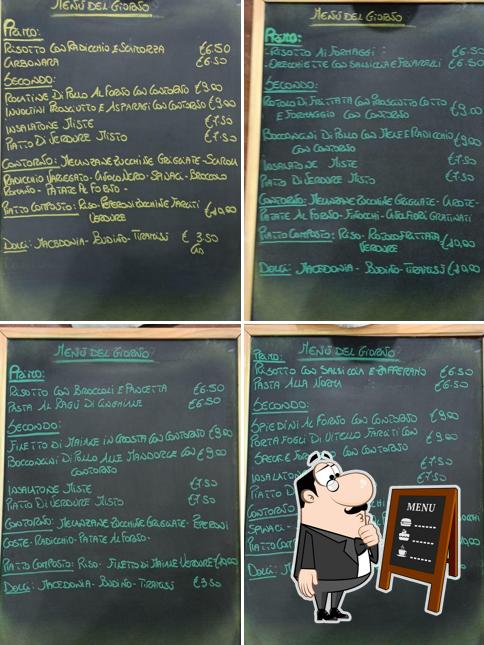 MENÙ DEL GIORNO
PRIMO:
RISOTTO CON RADICCHIO E SCAMORZA €6.50
CARBONARA €6.50
SECONDO:
POLLO AL FORNO CON CONTORNO €9.00
INVOLTINI PROSCIUTTO E ASPARAGI CON CONTORNO €9.00
INSALATONE MISTE €7.50
PIATTO DI VERDURE MISTO €7.50
CONTORNO: MELANZANE ZUCCHINE GRIGLIATE -
RADICCHIO VARIEGATO - CAVOLO NERO - SPINACI - BROCCOLO
ROMANO - PATATE AL FORNO -
PIATTO COMPOSTO: RISO - PEPERONI ZUCCHINE FARCITI
VERDURE €10.00
DOLCI: MACEDONIA - BUDINO - TIRAMISÙ € 3.50
MENÙ DEL GIORNO
PRIMO:
- RISOTTO AI FORMAGGI : €6.50
- ORECCHIETTE CON SALSICCIA E FRIARELLI €6.50
SECONDO:
ROTOLO DI FRITTATA CON PROSCIUTTO COTTO
E FORMAGGIO CON CONTORNO €9.00
BOCCONCINI DI POLLO CON MELE E RADICCHIO
CON CONTORNO €9.00
INSALATONE MISTE €7.50
PIATTO DI VERDURE MISTO €7.50
CONTORNO: MELANZANE ZUCCHINE GRIGLIATE - CAROTE -
PATATE AL FORNO - FINOCCHI - CAVOLFIORE GRATINATI
PIATTO COMPOSTO: RISO - ROTOLO FRITTATA
VERDURE €10.00
DOLCI: MACEDONIA - BUDINO - TIRAMISÙ €10.00
MENÙ DEL GIORNO
PRIMO:
RISOTTO CON BROCCOLI E PANCETTA €6.50
PASTA AL RAGÙ DI CINGHIALE €6.50
SECONDO:
FILETTO DI MAIALE IN CROSTA CON CONTORNO €9.00
BOCCONCINI DI POLLO ALLE MANDORLE CON €9.00
CONTORNO
INSALATONE MISTE €7.50
PIATTO DI VERDURE MISTO €7.50
CONTORNO: MELANZANE ZUCCHINE GRIGLIATE - PEPERONI
COSTE - RADICCHIO - PATATE AL FORNO -
PIATTO COMPOSTO: RISO - FILETTO DI MAIALE VERDURE €10.00
DOLCI: MACEDONIA - BUDINO - TIRAMISÙ €3.50
MENÙ DEL GIORNO
PRIMO:
RISOTTO CON SALSICCIA E ZAFFERANO €6.50
PASTA ALLA NORMA €6.50
SECONDO:
SPIEDINI AL FORNO CON CONTORNO €9.00
PORTAFOGLI DI VITELLO FARCITI CON €9.00
CON CONTORNO
€7.50
PIATTO €7.50
CONTORNO
SPINACI -
PIATTO
DOLCI:
MENU